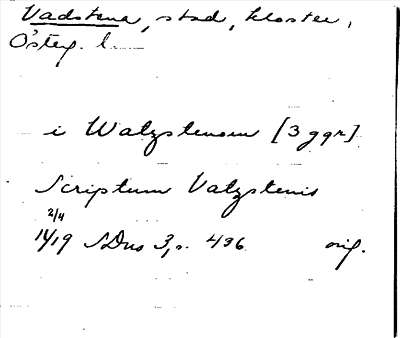 Vadstena, stad, kloster,
Österg. l.
i Watzstenom [3 ggr]
Scriptum Vatzstenis
2/4
1419 SDns 3, s. 436 orig.